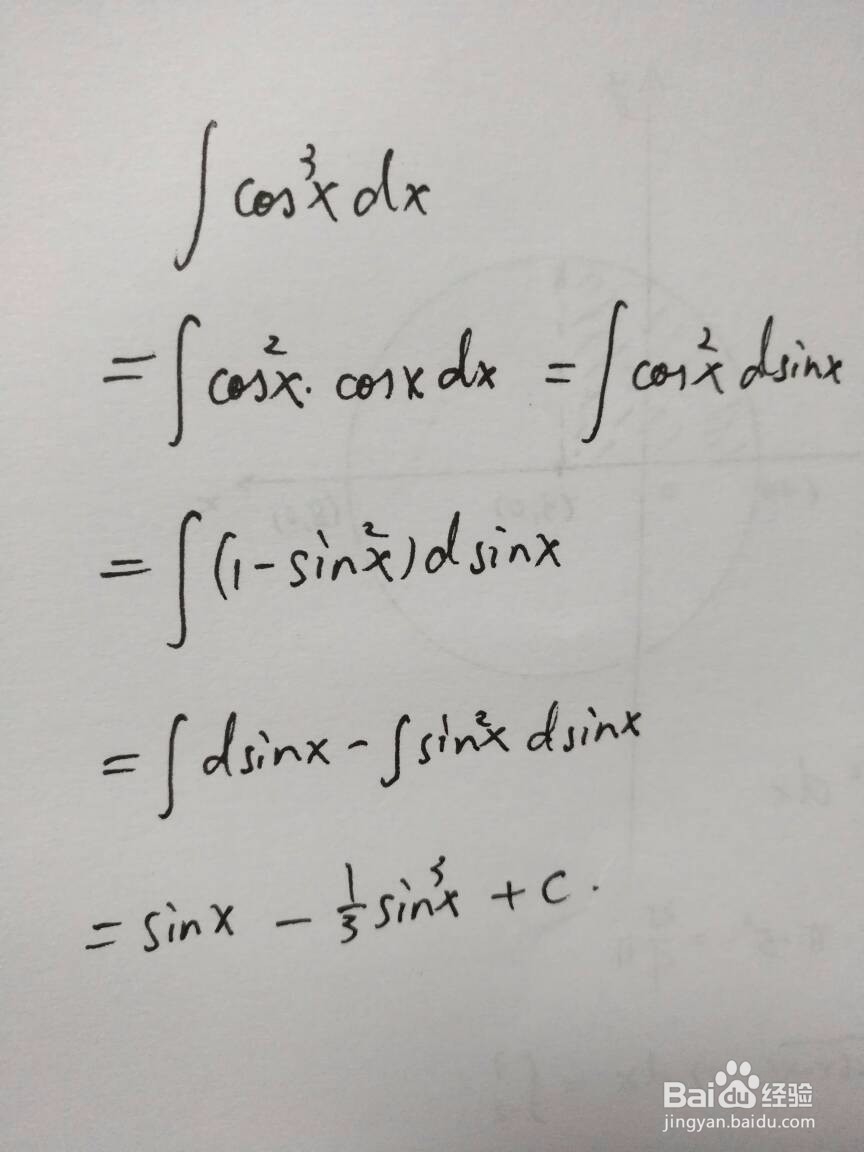 ∫ cos³x dx
= ∫ cos²x · cosx dx = ∫ cos²x dsinx
= ∫ (1 - sin²x) dsinx
= ∫ dsinx - ∫ sin²x dsinx
= sinx - 1/3 sin³x + C.
Baidu 经验
jingyan.baidu.com